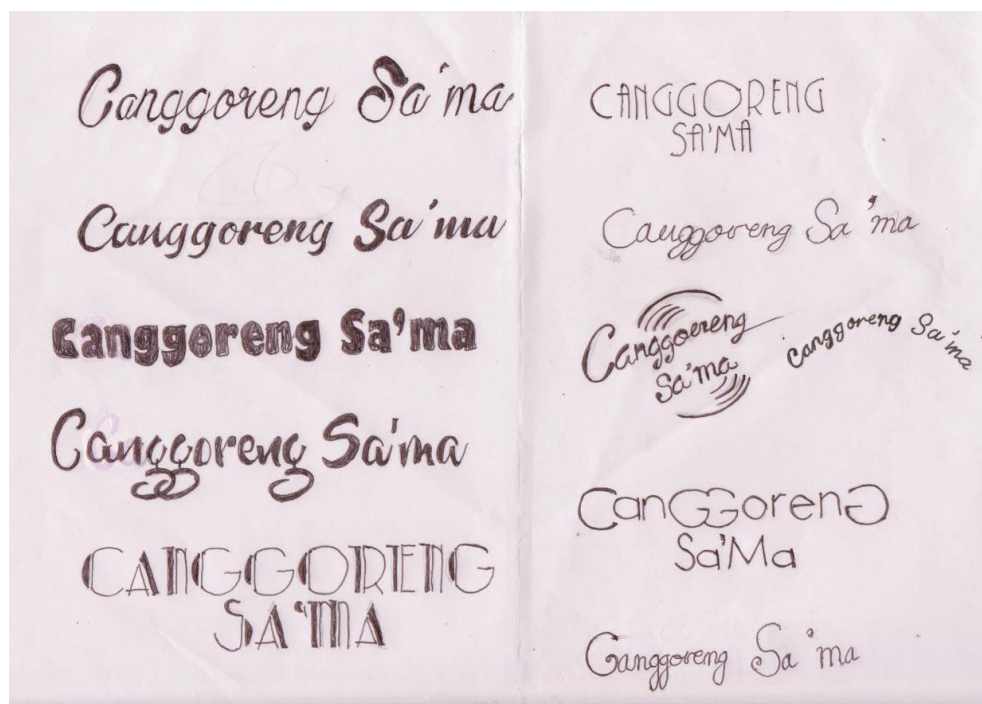 Canggoreng Sa'ma
Canggoreng Sa'ma
Canggoreng Sa'ma
Canggoreng Sa'ma
CANGGORENG
SA'MA
CANGGORENG
SA'MA
Canggoreng Sa'ma
Canggoereng
Sa'ma
Canggoreng Sa'ma
CanGGorenG
Sa'Ma
Canggoreng Sa'ma